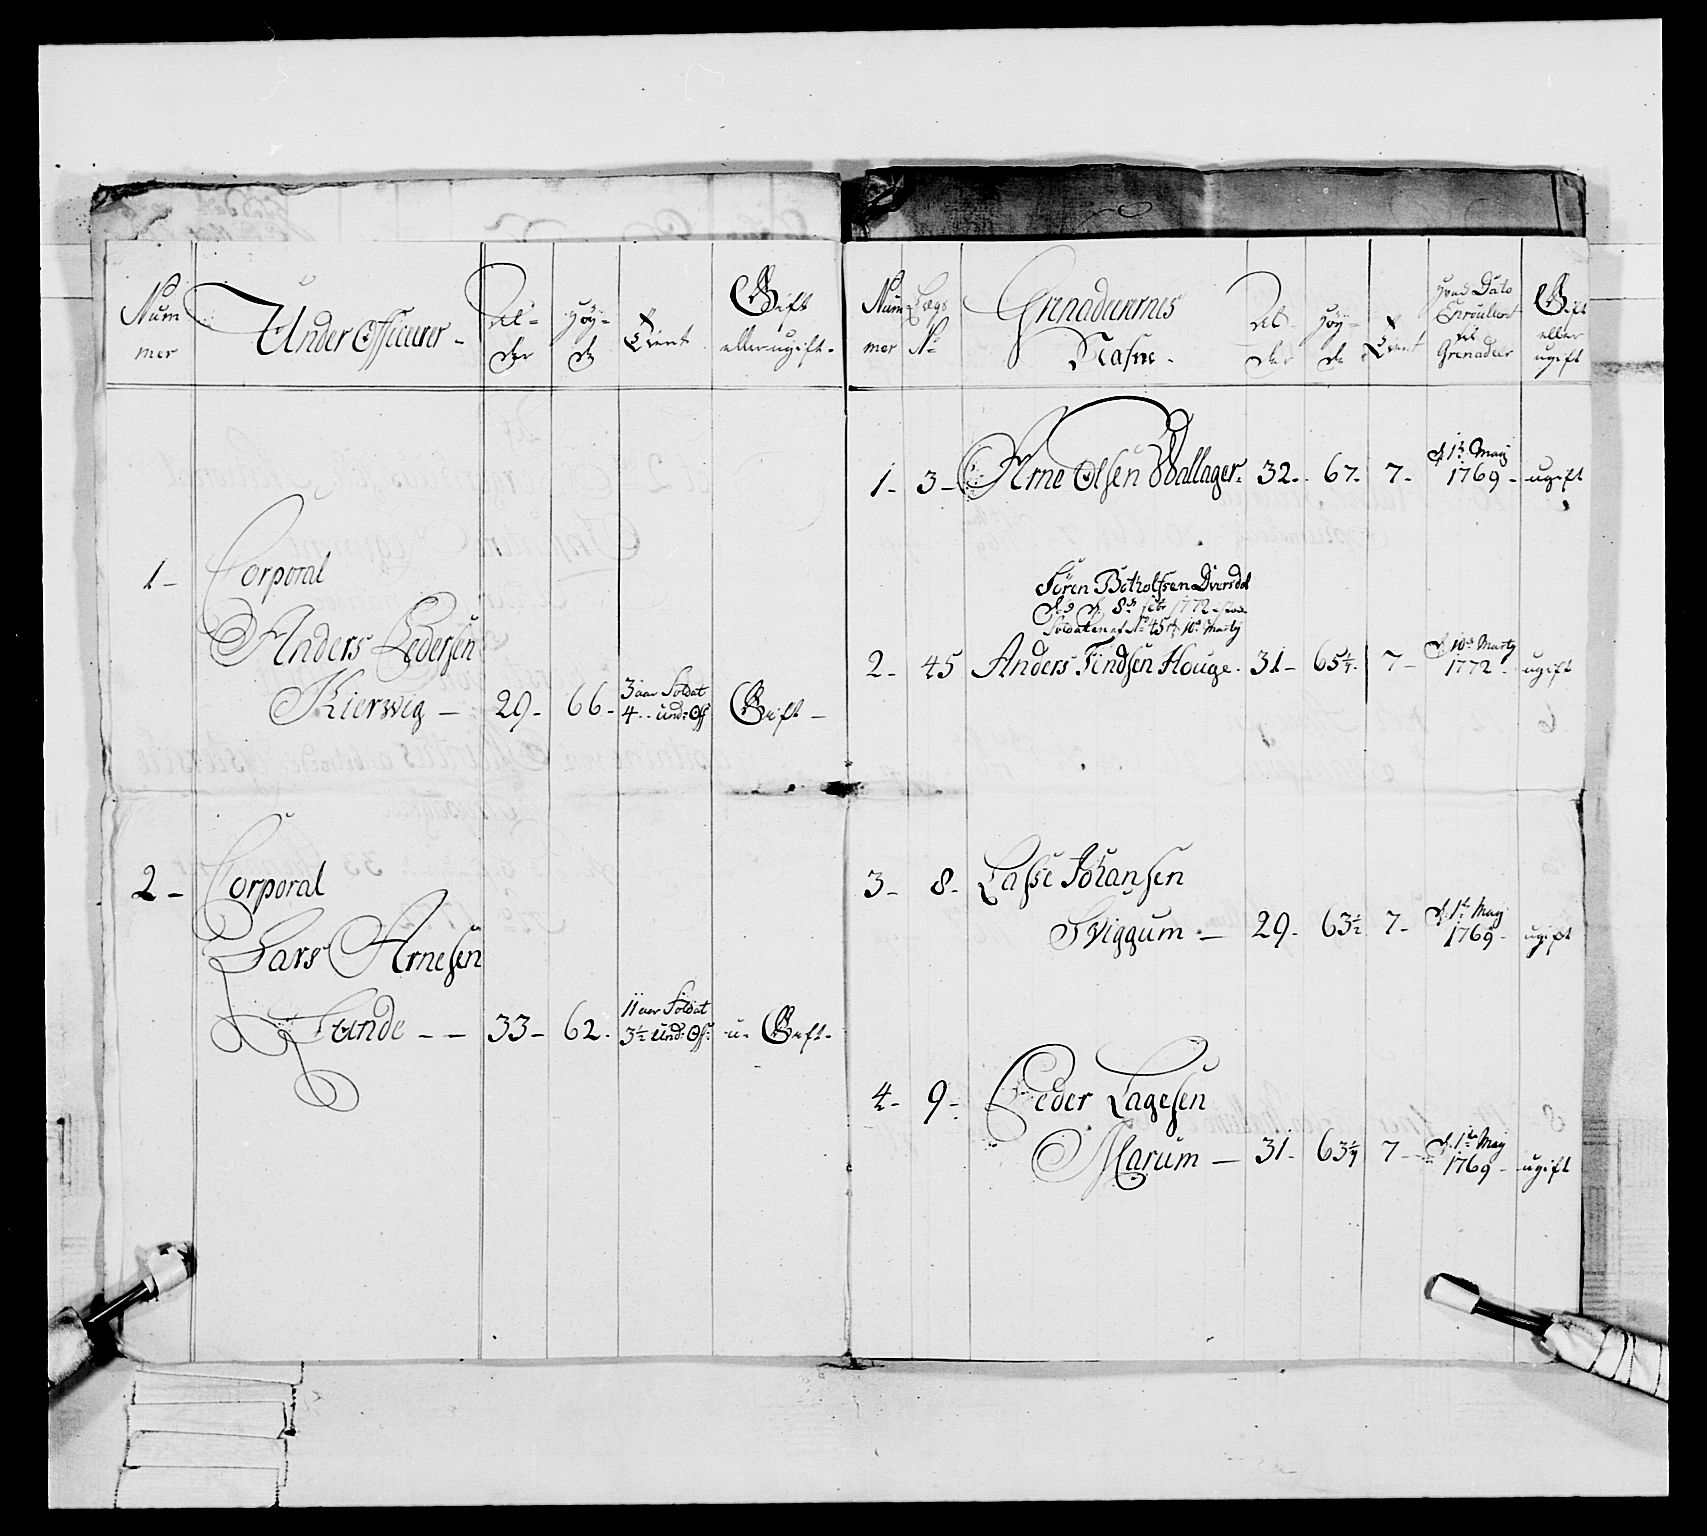 Num
mer
Under Officerer -
Al-
der
Høy-
de
Tient
Gift
eller ugift -
1 -
Corporal
Anders Pedersen
Kierwig - 29 - 66 - 3 aar Soldat
4 .. Und: Off Gift -
2 - Corporal
Lars Arnesen
Lunde - - 33 - 62 - 11 aar Soldat
3½ Und: Off: u - Gift -
Num
mer
Lægs
No
Grenaderernes
Nafne -
Al-
der
Høy-
de
Tient
Hvad Dato
Enroulleret
til
Grenadeer
Gift
eller
ugift
1 - 3 - Arne Olsen Wallager - 32 - 67 - 7 - d 1te Maij
1769 - ugift
Søren Botholfsen Dversdal
død d 8de febr 1772
Soldaten af No 45 d: 10de Marty
2 - 45 Anders Findsen Houge - 31 - 65¼ - 7 - d 10de Marty
1772 - ugift
3 - 8 - Lasse Johansen
Sviggum - 29 - 63½ 7 - d. 1te May
1769 - ugift
4 - 9 - Peder Lagesen
Marum - 31 - 63¼ 7 - d. 1te May
1769 - ugift